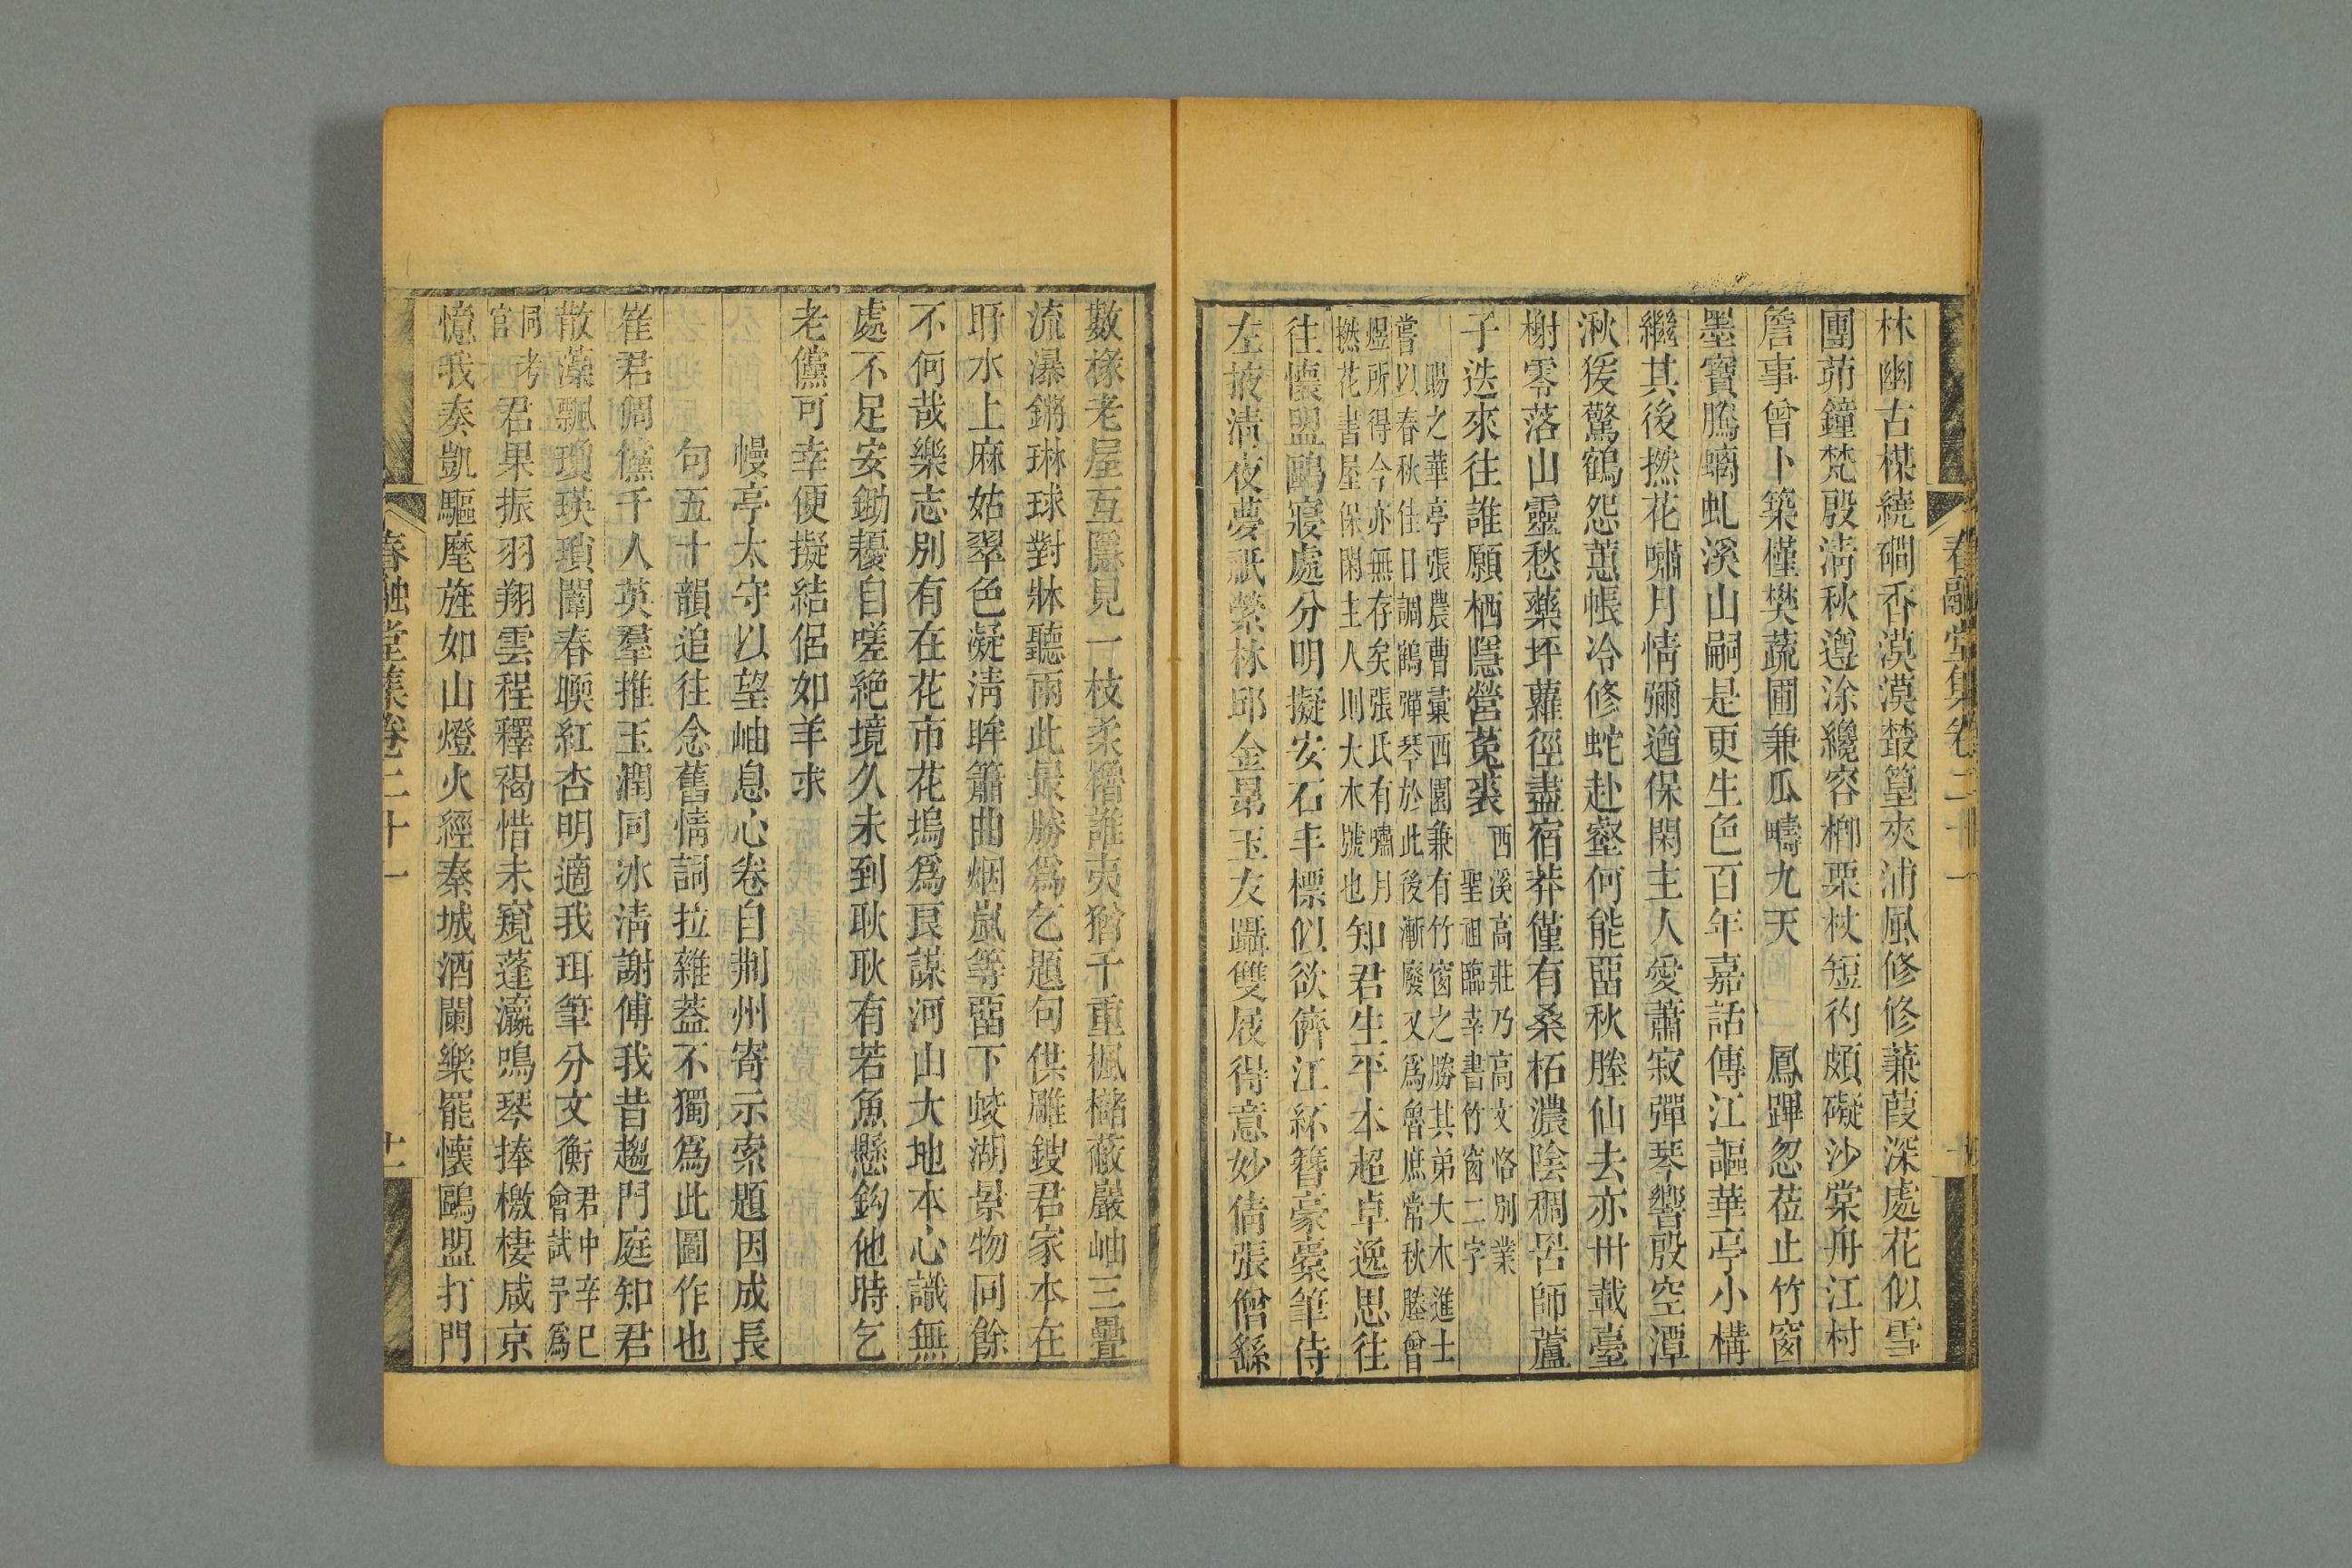 春融堂集卷二十一
林幽古楳繞磵香漠漠藂篁夾浦風修修蒹葭深處花似雪
團茆鐘梵殷清秋遵涂纔容楖栗杖短彴頗礙沙棠舟江村
詹事曾卜築槿樊蔬圃兼瓜疇九天鳳蹕忽莅止竹窗
墨寶騰螭虬溪山嗣是更生色百年嘉話傳江謳華亭小構
繼其後撚花嘯月情彌遒保閑主人愛蕭寂彈琴響殷空潭
湫猨驚鶴怨蕙帳冷修蛇赴壑何能畱秋塍仙去亦卅載臺
榭零落山靈愁藥坪蘿徑盡宿莽僅有桑柘濃陰稠呂師蘆
子迭來往誰願栖隱營菟裘
西溪高莊乃高文恪別業
聖祖臨幸書竹窗二字
賜之華亭張農曹彚西園兼有竹窗之勝其弟大木進士
嘗以春秋佳日調鶴彈琴於此後漸廢又爲魯庶常秋塍曾
煜所得今亦無存矣張氏有嘯月
撚花書屋保閑主人則大木號也
知君生平本超卓逸思往
往懷盟鷗寢處分明擬安石丰標似欲儕江紑簪豪橐筆侍
左掖清夜夢祇縈林邱金㬇玉友躡雙屐得意妙倩張僧繇
數椽老屋互隱見一枝柔櫓誰夷猶千重楓櫧蔽巖岫三疊
流瀑鏘琳球對牀聽雨此最勝爲乞題句供雕鎪君家本在
盱水上麻姑翠色凝清眸簫曲烟嵐等畱下蛟湖景物同餘
不何哉樂志別有在花市花塢爲良謀河山大地本心識無
處不足安鋤耰自嗟絶境久未到耿耿有若魚懸鈎他時乞
老儻可幸便擬結侶如羊求
幔亭太守以望岫息心卷自荆州寄示索題因成長
句五十韻追往念舊情詞拉雜葢不獨爲此圖作也
崔君倜儻千人英羣推玉潤同冰清謝傅我昔趨門庭知君
散藻飄瓊瑛瑣闈春暎紅杏明適我珥筆分文衡
君中辛巳
會試予爲
同考
官
君果振羽翔雲程釋褐惜未窺蓬瀛鳴琴捧檄棲咸京
憶我奏凱驅麾旌如山燈火經秦城酒闌樂罷懷鷗盟打門
春融堂集卷二十一
十一